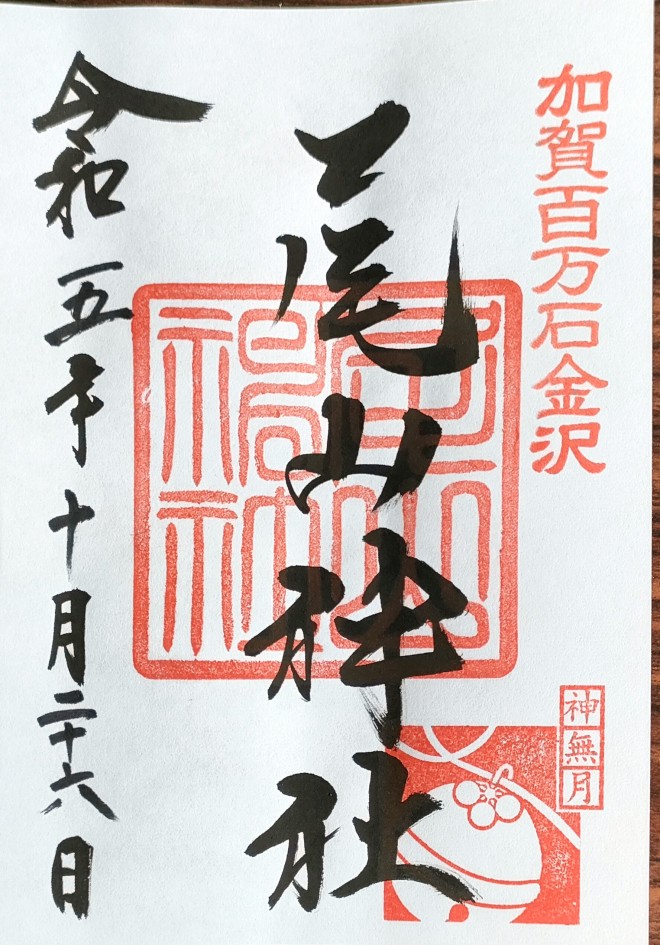 加賀百万石金沢
神無月
尾山神社
令和五年十月二十六日